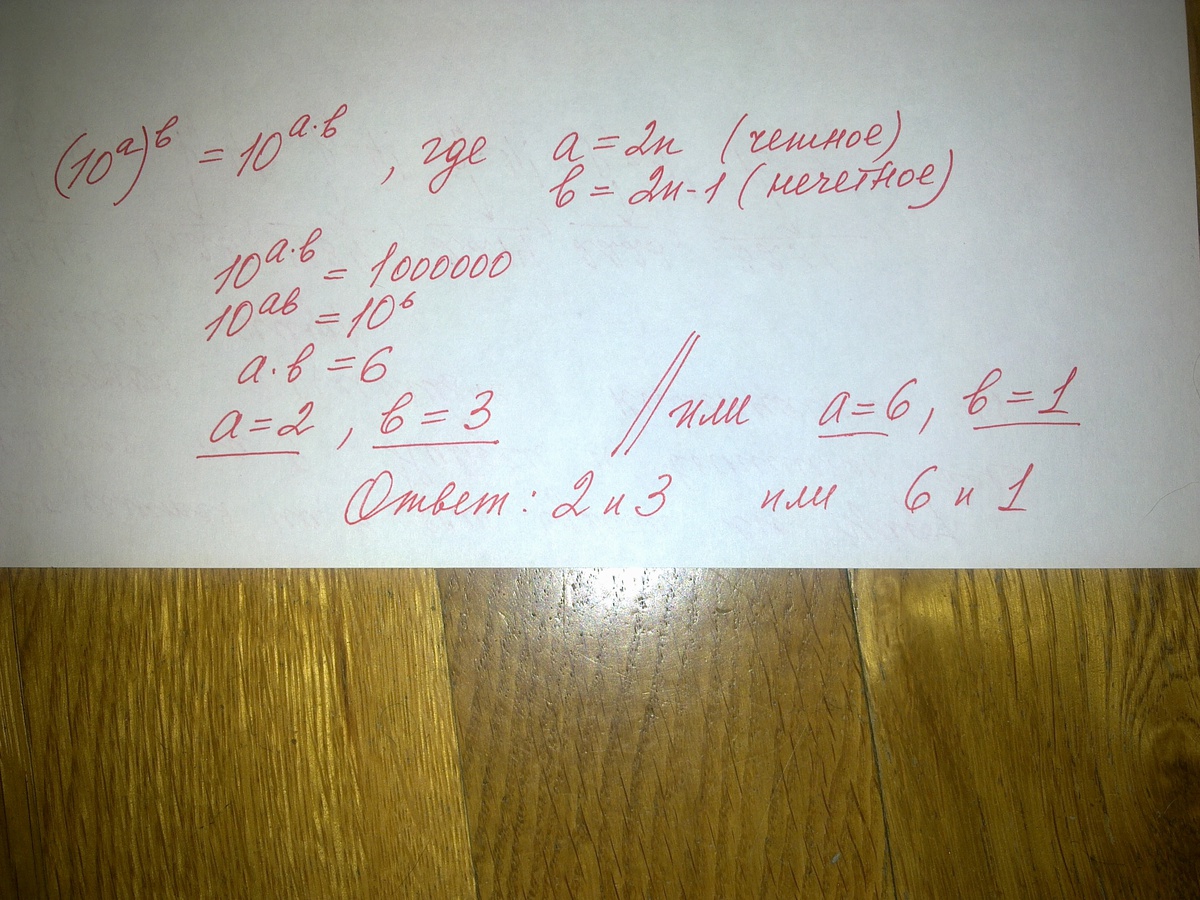 (10^a)^в = 10^{a·в} , где a = 2n (четное)
в = 2n-1 (нечетное)
10^{a·в} = 1000000
10^{aв} = 10^6
a·в = 6
a = 2 , в = 3 // или a = 6, в = 1
Ответ: 2 и 3 или 6 и 1